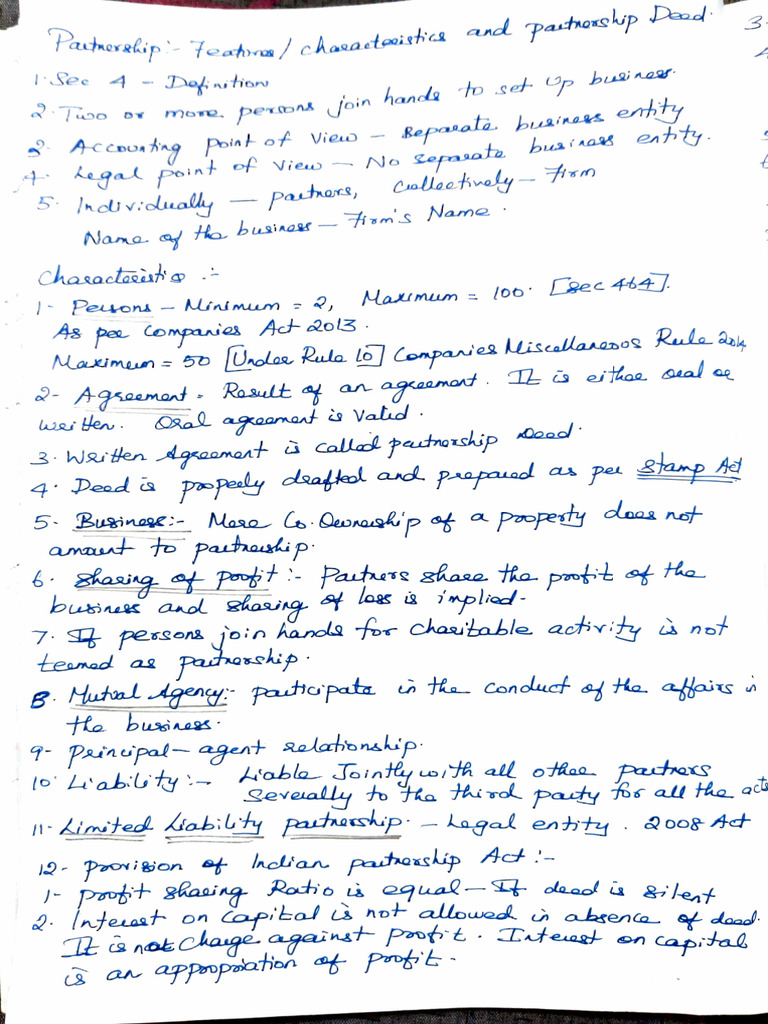 Partnership:- Features/characteristics and partnership Deed.
1. Sec 4 - Definition
2. Two or more persons join hands to set up business.
3. Accounting point of View - Separate business entity
4. Legal point of View - No separate business entity.
5. Individually - partners, Collectively - Firm
Name of the business - Firm's Name.
Characteristics :-
1- Persons - Minimum = 2, Maximum = 100. [Sec 464].
As per Companies Act 2013.
Maximum = 50 [Under Rule 10] Companies Miscellaneous Rule 2014
2- Agreement - Result of an agreement. It is either oral or
written. Oral agreement is Valid.
3. Written Agreement is called partnership Deed.
4. Deed is properly drafted and prepared as per Stamp Act
5- Business:- Mere Co.Ownership of a property does not
amount to partnership.
6. Sharing of profit :- Partners share the profit of the
business and sharing of loss is implied-
7. If persons join hands for charitable activity is not
teemed as partnership.
8. Mutual Agency:- participate in the conduct of the affairs in
the business.
9- Principal - agent relationship.
10. Liability :- Liable Jointly with all other partners
Severally to the third party for all the acts
11- Limited Liability partnership. - Legal entity. 2008 Act
12- Provision of Indian partnership Act :-
1- Profit sharing Ratio is equal - If deed is silent
2. Interest on Capital is not allowed in absence of deed.
It is not Charge against profit. Interest on capital
is an appropriation of profit.
3.